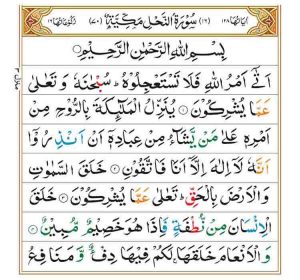 اٰیاتها ۱۲۸ (۱۶) سُوْرَةُ النَّحْلِ مَكِّيَّةٌ (۷۰) رُكُوْعَاتُهَا ۱۶
بِسْمِ اللهِ الرَّحْمٰنِ الرَّحِيْمِ
اَتٰۤى اَمْرُ اللهِ فَلَا تَسْتَعْجِلُوْهُ ؕ سُبْحٰنَهٗ وَ تَعٰلٰى
عَمَّا يُشْرِكُوْنَ ۝ يُنَزِّلُ الْمَلٰٓئِكَةَ بِالرُّوْحِ مِنْ
اَمْرِهٖ عَلٰى مَنْ يَّشَآءُ مِنْ عِبَادِهٖۤ اَنْ اَنْذِرُوْۤا
اَنَّهٗ لَاۤ اِلٰهَ اِلَّاۤ اَنَا فَاتَّقُوْنِ ۝ خَلَقَ السَّمٰوٰتِ
وَ الْاَرْضَ بِالْحَقِّ ؕ تَعٰلٰى عَمَّا يُشْرِكُوْنَ ۝ خَلَقَ
الْاِنْسَانَ مِنْ نُّطْفَةٍ فَاِذَا هُوَ خَصِيْمٌ مُّبِيْنٌ ۝
وَ الْاَنْعَامَ خَلَقَهَا ۚ لَكُمْ فِيْهَا دِفْءٌ وَّ مَنَافِعُ